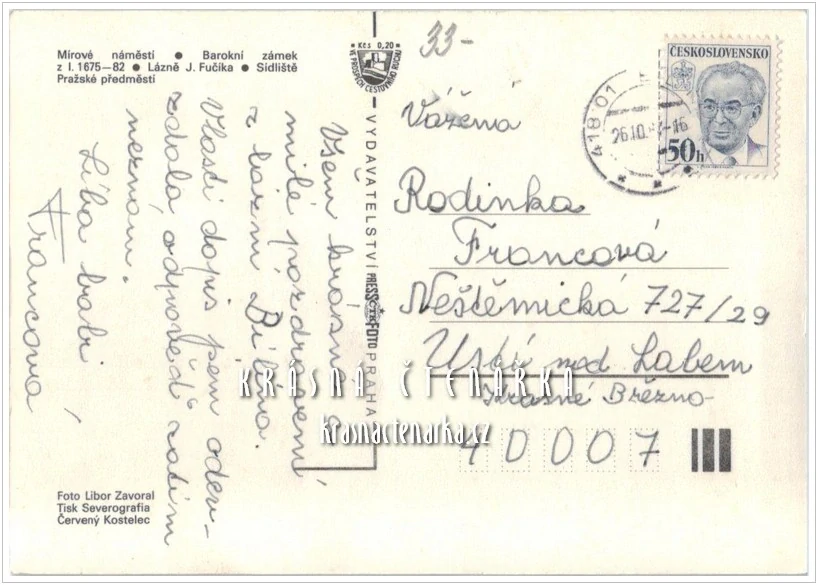 Mírové náměstí • Barokní zámek
z l. 1675–82 • Lázně J. Fučíka • Sídliště
Pražské předměstí
Kčs 0,20
VE PROSPĚCH CESTOVNÍHO RUCHU
33-
ČESKOSLOVENSKO
50h
418 01
26.10.
Všem krásné a
milé pozdravení
z lázní Bílina.
Vlasti dopis jsem ode-
zdala, odpověď zatím
neznám.
Líba babi
Francová
VYDAVATELSTVÍ PRESSFOTO PRAHA
Vážená
Rodinka
Francová
Neštěmická 727/29
Ústí nad Labem
Krásné Březno
40007
KRÁSNÁ ČTENÁRKA
krasnactenarka.cz
Foto Libor Zavoral
Tisk Severografia
Červený Kostelec